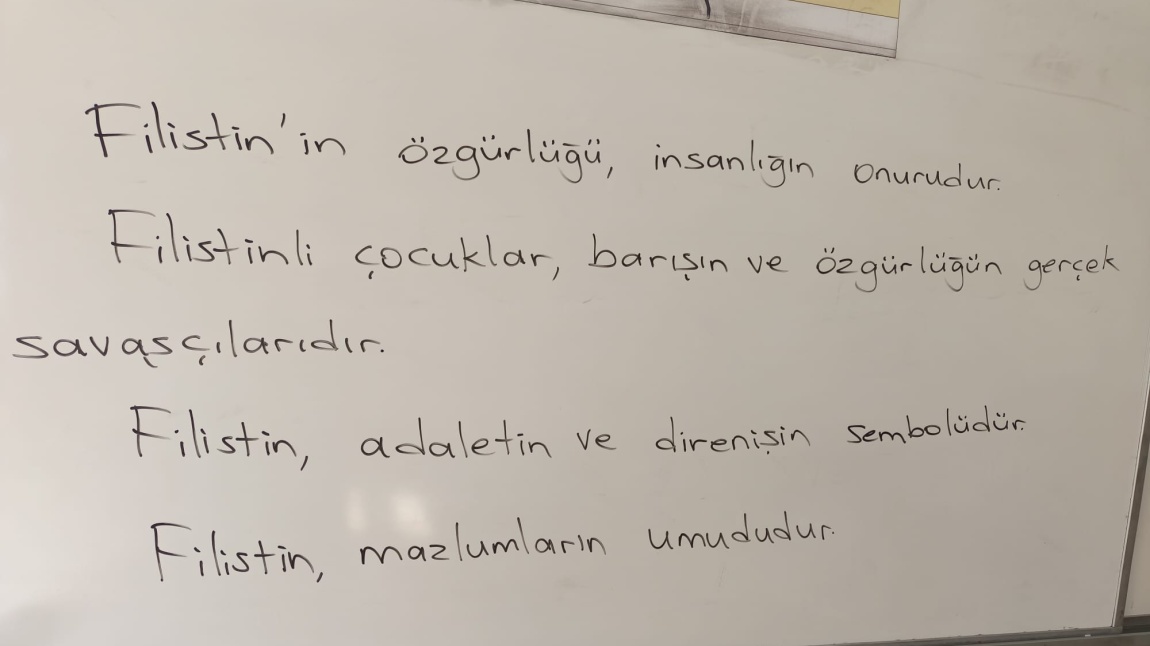 Filistin'in özgürlüğü, insanlığın onurudur.
Filistinli çocuklar, barışın ve özgürlüğün gerçek
savaşçılarıdır.
Filistin, adaletin ve direnişin sembolüdür.
Filistin, mazlumların umududur.